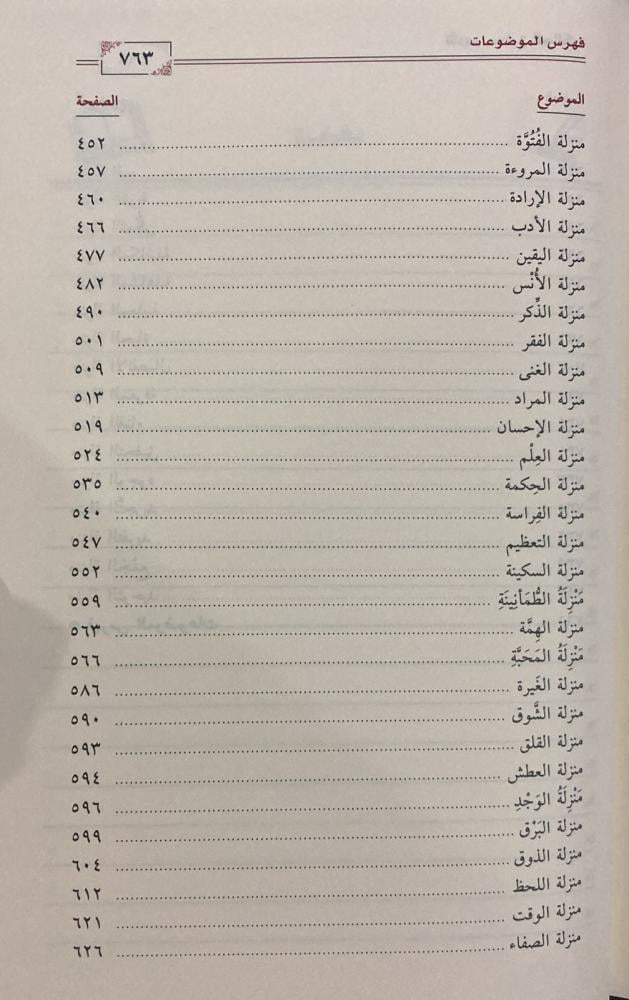 فهرس الموضوعات ٧٦٣
الموضوع الصفحة
منزلة الفُتُوَّة ٤٥٢
منزلة المروءة ٤٥٧
منزلة الإرادة ٤٦٠
منزلة الأدب ٤٦٦
منزلة اليقين ٤٧٧
منزلة الأُنْس ٤٨٢
منزلة الذِّكر ٤٩٠
منزلة الفقر ٥٠١
منزلة الغنى ٥٠٩
منزلة المراد ٥١٣
منزلة الإحسان ٥١٩
منزلة العِلْم ٥٢٤
منزلة الحِكمة ٥٣٥
منزلة الفِراسة ٥٤٠
منزلة التعظيم ٥٤٧
منزلة السكينة ٥٥٢
مَنْزِلَةُ الطُّمَأنِينَةِ ٥٥٩
منزلة الهِمَّة ٥٦٣
مَنْزِلَةُ المَحَبَّةِ ٥٦٦
منزلة الغَيرة ٥٨٦
منزلة الشَّوق ٥٩٠
منزلة القلق ٥٩٣
منزلة العطش ٥٩٤
مَنْزِلَةُ الوَجْدِ ٥٩٦
منزلة البَرْق ٥٩٩
منزلة الذوق ٦٠٤
منزلة اللحظ ٦١٢
منزلة الوقت ٦٢١
منزلة الصفاء ٦٢٦